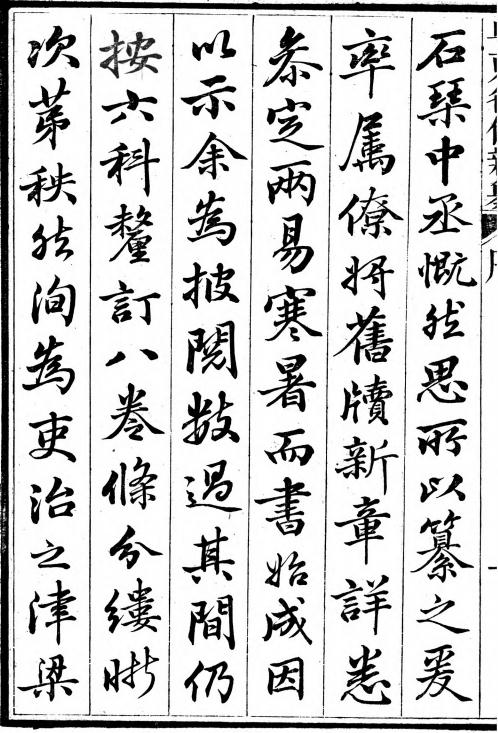 石琹中丞慨然思所以纂之爰
率属僚將舊牘新章詳悉
叅定兩易寒暑而書始成因
以示余為披閱数過其間仍
按六科釐訂八卷條分縷晰
次第秩然洵為吏治之津梁